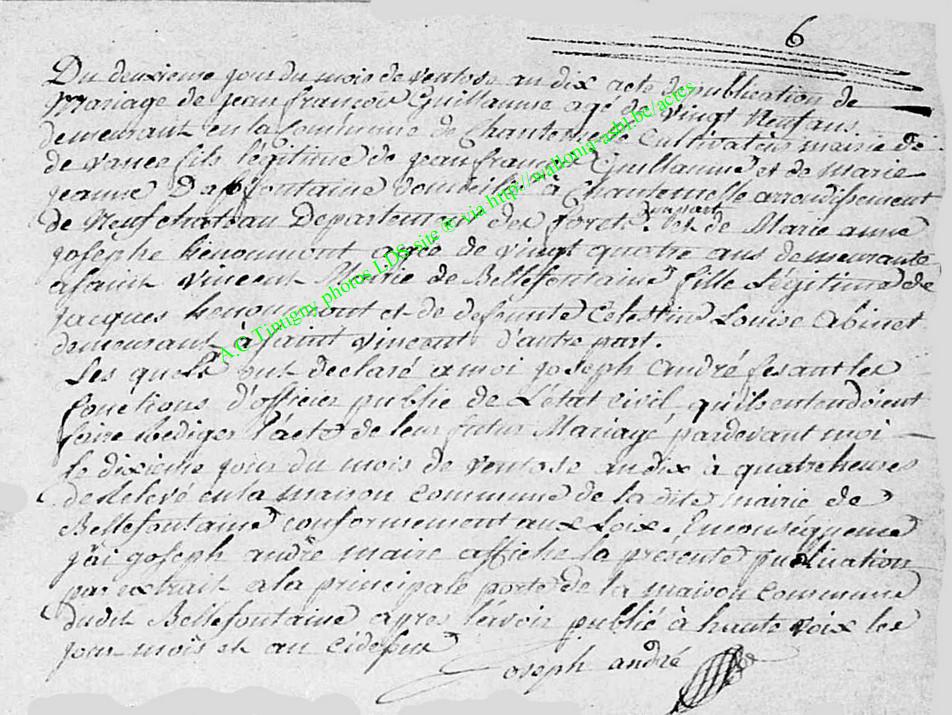 6
Du deuxieme jour du mois de ventose an dix acte de publication de
Mariage de jean françois Guillaume agé de vingt Neuf ans
demeurant en la Commune de Chantemelle Cultivateur mairie de
de vance fils legitime de jean françois Guillaume et de marie
jeanne Dapfontaine domicilié à Chantemelle arrondissement
de Neufchateau Departement des forets. d'une part et de Marie anne
josephe henoumont agée de vingt quatre ans demeurante
a saint Vincent Mairie de Bellefontaine fille Légitime de
jacques henoumont et de defunte Celestine Louise Cabinet
demeurant à saint vincent d'autre part.
Les quels ont declaré a moi joseph andré fesant les
fonctions d'officier public de L'état civil, qu'ils entendoient
faire rediger l'acte de leur futur Mariage pardevant moi
le dixieme jour du mois de ventose an dix à quatre heures
de Relevé en la maison Commune de la dite mairie de
Bellefontaine conformement aux Loix. En conséquence
j'ai joseph andré maire affiché la présente publication
par extrait a la principale porte de la maison commune
dudit Bellefontaine apres l'avoir publié à haute voix les
jour mois et an cidessus
joseph andré
A.G Tintigny photos LDS site © via http://wallonia-asbl.be/actes